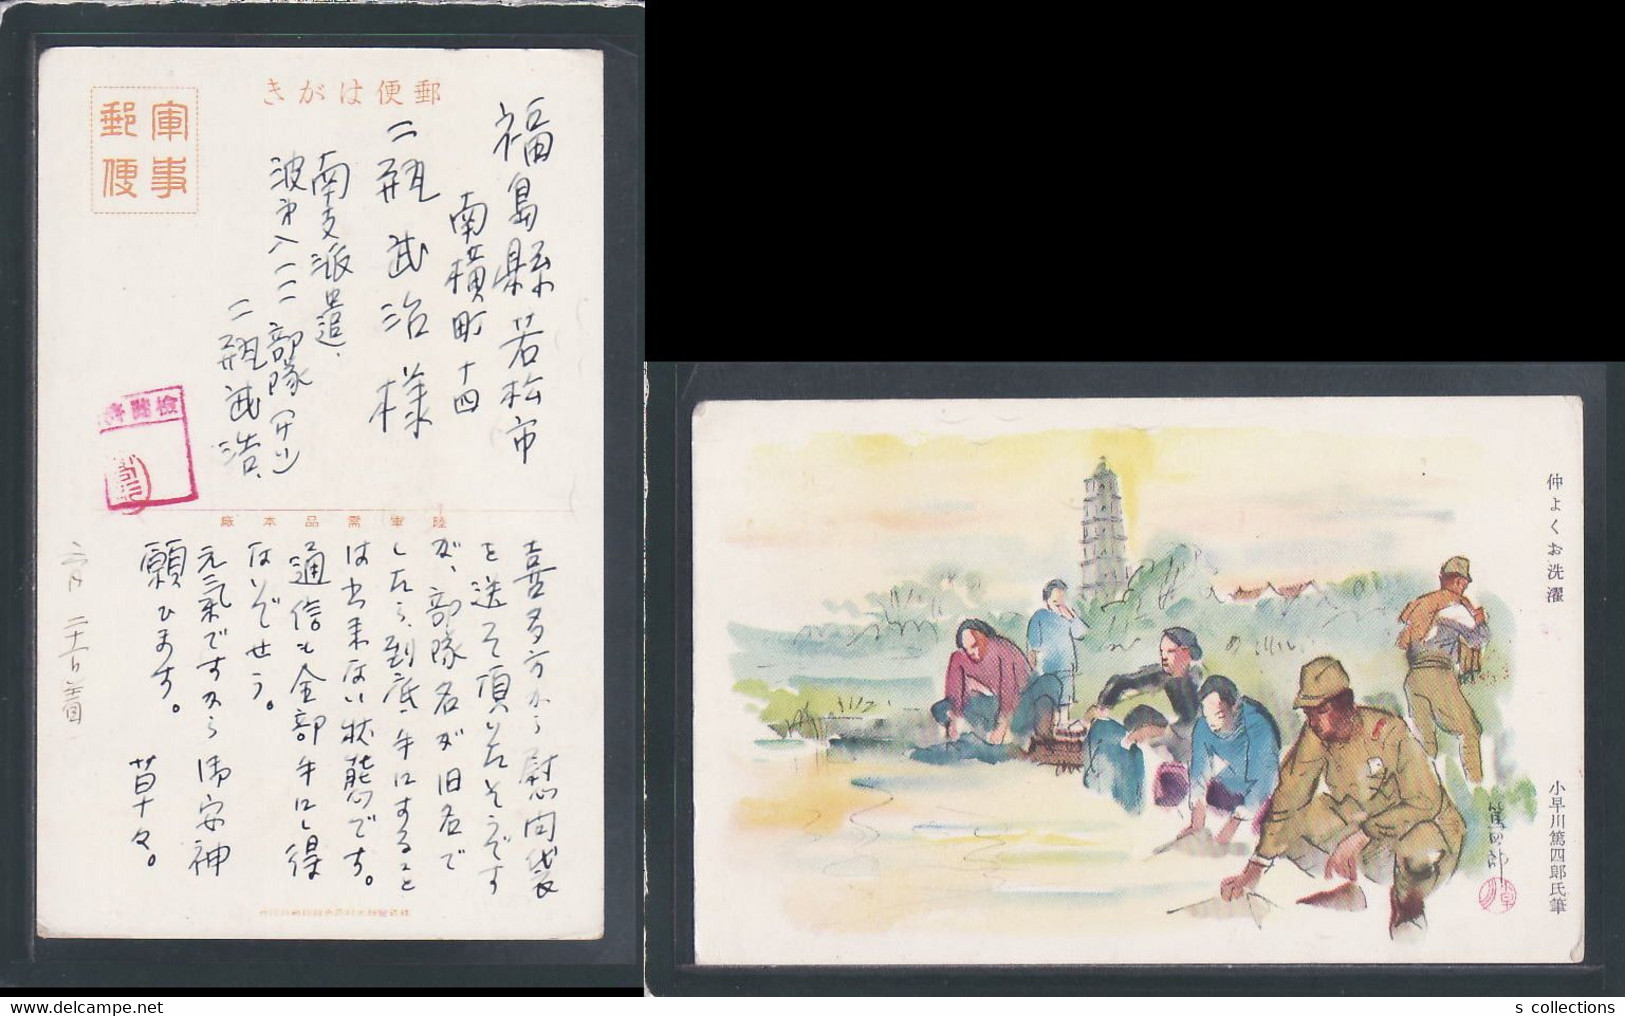 郵便はがき
軍事
郵便
福島縣若松市
南横町十四
二瓶武治様
南支派遣、
波第八一一一部隊
二瓶武浩、
検閲済
陸軍需品本廠
喜多方から慰問袋
を送って頂いたそうです
が、部隊名が旧名で
したら、到底手にすること
は出来ない状態です。
通信も全部手にし得
ないでせう。
元気ですから御安神
願ひます。
草々。
六月二十一日着
仲よくお洗濯
小早川篤四郎氏筆
篤四郎
s collections